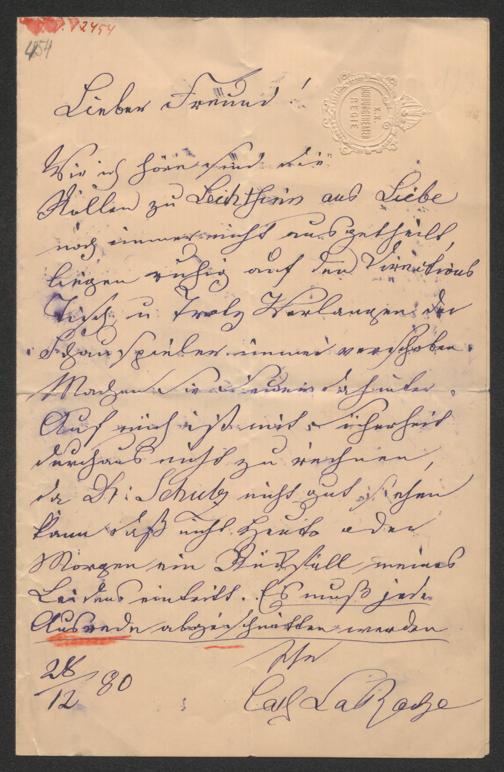 I.N. 72454
454
K. K. HOFBURGTHEATER
REGIE
Lieber Freund!
Wie ich höre sind die
Rollen zu Leichtsinn aus Liebe
noch immer nicht ausgetheilt,
liegen ruhig auf den Directions
Tisch u Trotz Verlangen der
Schauspieler immer verschoben.
Machen Sie dahinter.
Auf mich ist mit Sicherheit
durchaus nicht zu rechnen,
da Dr: Schulz nicht gut stehen
kann daß nicht Heute oder
Morgen ein Rückfall meines
Leidens eintritt. Es muß jede
Ausrede abgeschnitten werden
Ihr
28/12 80
Carl La Roche